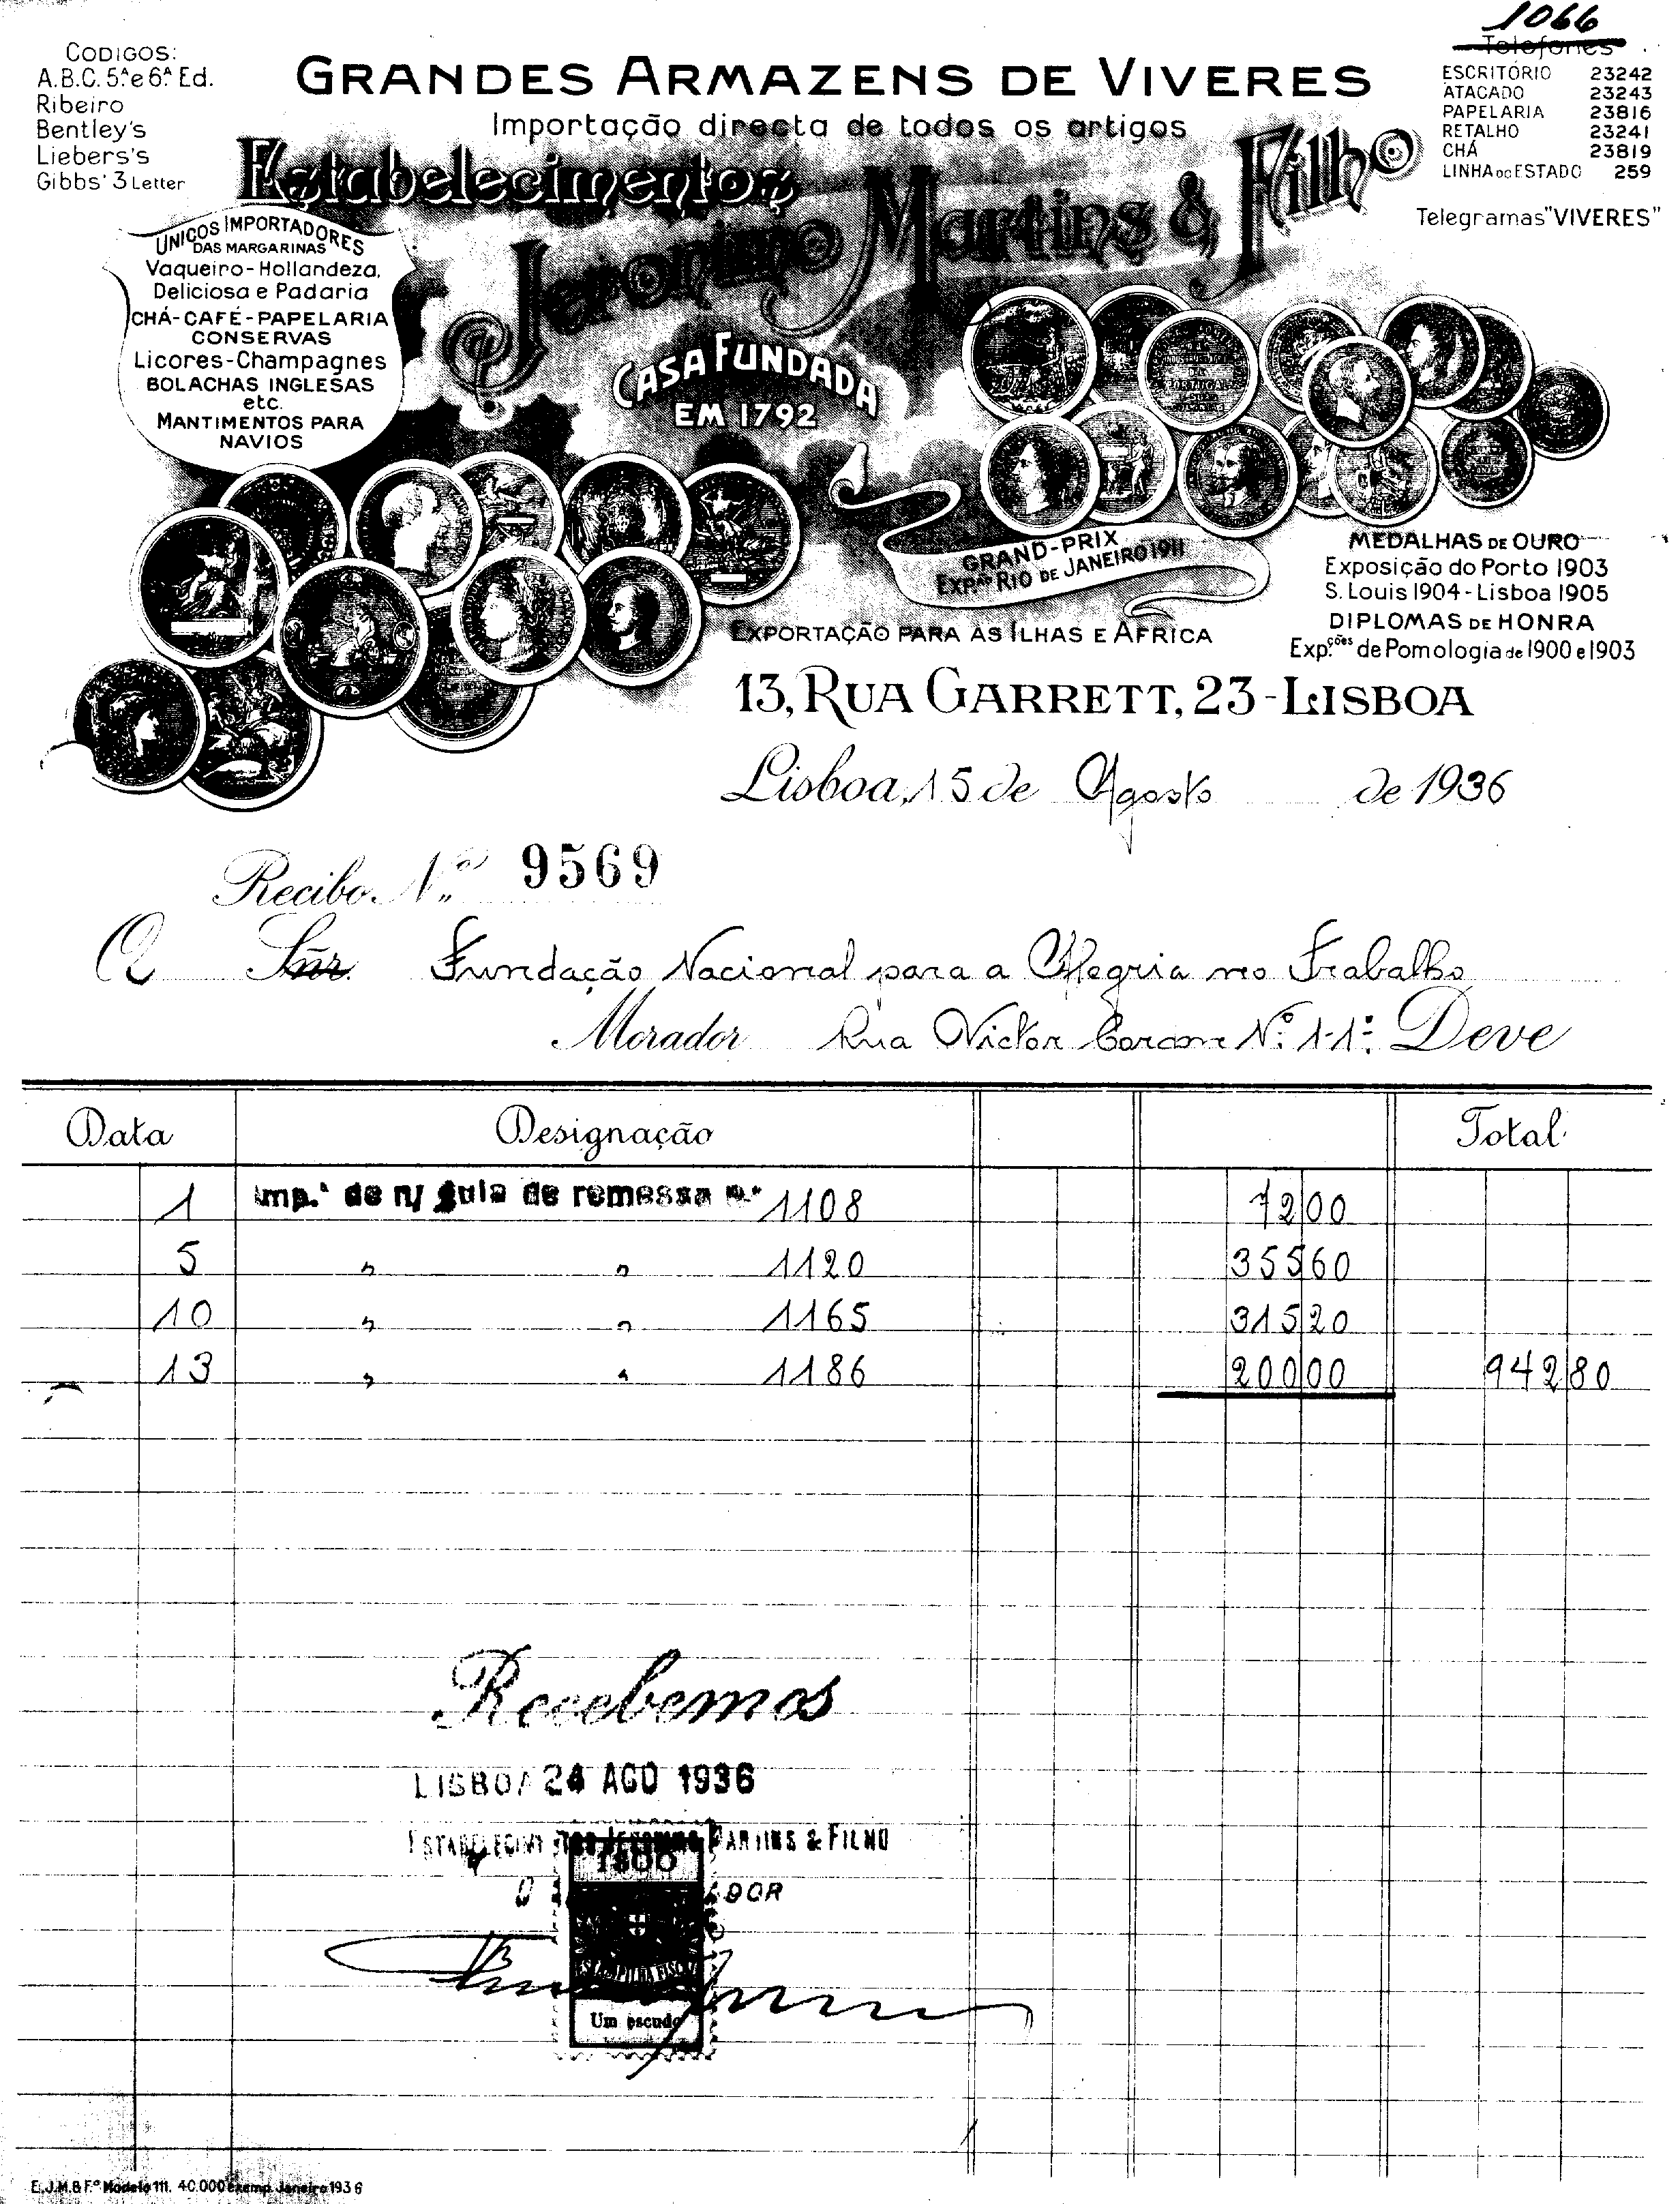 1066
CODIGOS:
A.B.C. 5.ª e 6.ª Ed.
Ribeiro
Bentley's
Liebers's
Gibbs' 3 Letter
GRANDES ARMAZENS DE VIVERES
Importação directa de todos os artigos
Telefones
ESCRITÓRIO 23242
ATACADO 23243
PAPELARIA 23816
RETALHO 23241
CHÁ 23819
LINHA DO ESTADO 259
Telegramas "VIVERES"
Estabelecimentos
Jeronimo Martins & Filho
UNICOS IMPORTADORES
DAS MARGARINAS
Vaqueiro-Hollandeza,
Deliciosa e Padaria
CHÁ-CAFÉ-PAPELARIA
CONSERVAS
Licores-Champagnes
BOLACHAS INGLESAS
etc.
MANTIMENTOS PARA
NAVIOS
CASA FUNDADA
EM 1792
GRAND-PRIX
EXP.ção RIO DE JANEIRO 1911
MEDALHAS DE OURO
Exposição do Porto 1903
S. Louis 1904 - Lisboa 1905
DIPLOMAS DE HONRA
Exp.ções de Pomologia de 1900 e 1903
EXPORTAÇÃO PARA AS ILHAS E AFRICA
13, RUA GARRETT, 23 - LISBOA
Lisboa, 15 de Agosto de 1936
Recibo N.º 9569
A Snr. Fundação Nacional para a Alegria no Trabalho
Morador Rua Victor Cordon Nº 1-1º Deve
Data Designação Total
1 Imp.ª de n/ guia de remessa n.º 1108 72 00
5 " " 1120 355 60
10 " " 1165 315 20
13 " " 1186 200 00 942 80
Recebemos
LISBOA 24 AGO 1936
ESTABELECIMENTOS JERONIMO MARTINS & FILHO
1$00
ESTAMPILHA FISCAL
Um escudo
E. J. M. & F.º Modelo 111. 40.000 exemp. Janeiro 1936